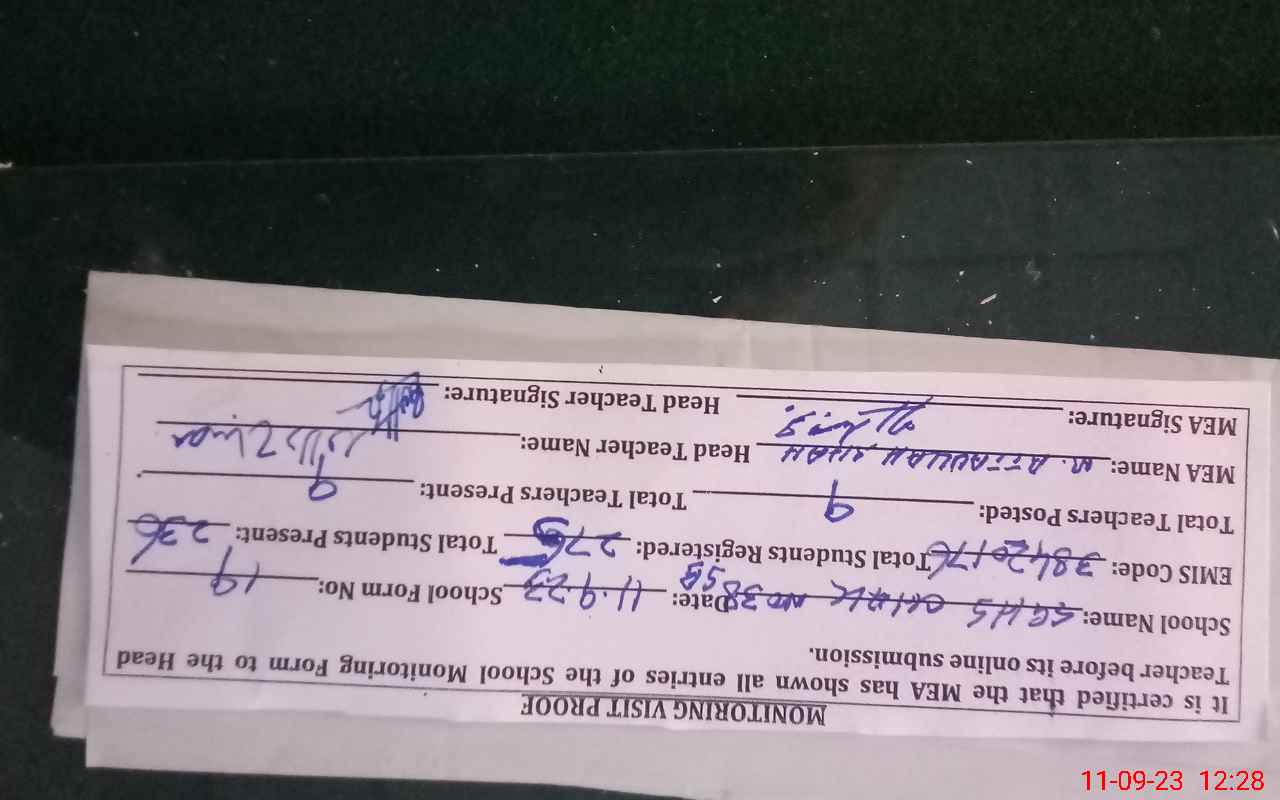 MONITORING VISIT PROOF
It is certified that the MEA has shown all entries of the School Monitoring Form to the Head
Teacher before its online submission.
School Name: GGHS CHAK NO 38 SB Date: 11.9.23 School Form No: 19
EMIS Code: 38420176 Total Students Registered: 276 Total Students Present: 236
Total Teachers Posted: 9 Total Teachers Present: 9
MEA Name: M. ATTAULLAH KHAN Head Teacher Name:
MEA Signature: Head Teacher Signature:
11-09-23 12:28